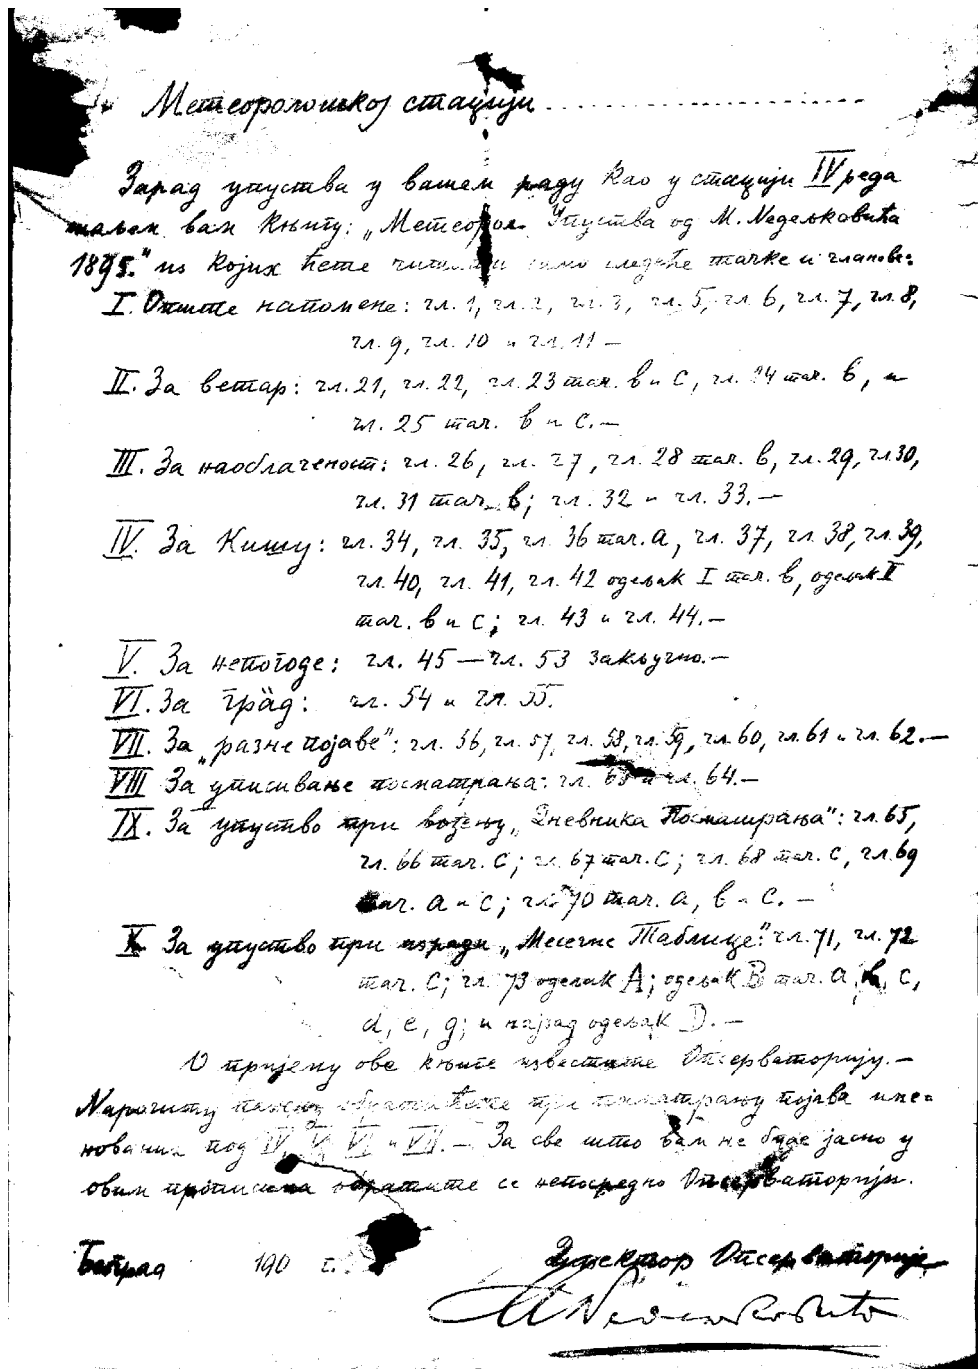 Метеоролошкој стацији
Зарад упуства у вашем раду као у стацији IV реда
шаљем вам књигу: „Метеорол. Упуства од М. Недељковића
1895.“ из којих ћете читати само следеће тачке и чланове:
I. Опште напомене: чл. 1, чл. 2, чл. 3, чл. 5, чл. 6, чл. 7, чл. 8,
чл. 9, чл. 10 и чл. 11 —
II. За ветар: чл. 21, чл. 22, чл. 23 тач. в и с, чл. 24 тач. в, и
чл. 25 тач. в и с. —
III. За наоблаченост: чл. 26, чл. 27, чл. 28 тач. в, чл. 29, чл 30,
чл. 31 тач. в; чл. 32 и чл. 33. —
IV. За Кишу: чл. 34, чл. 35, чл. 36 тач. а, чл. 37, чл. 38, чл. 39,
чл. 40, чл. 41, чл. 42 одељак I тач. в, одељак II
тач. в и с; чл. 43 и чл. 44. —
V. За непогоде: чл. 45 — чл. 53 закључно. —
VI. За град: чл. 54 и чл. 55.
VII. За „разне појаве“: чл. 56, чл. 57, чл. 58, чл. 59, чл. 60, чл. 61 и чл. 62. —
VIII За уписивање посматрања: чл. 63 и чл. 64. —
IX. За упуство при вођењу „Дневника Посматрања“: чл. 65,
чл. 66 тач. С; чл. 67 тач. С; чл. 68 тач. с, чл. 69
тач. а и с; чл. 70 тач. а, в и с. —
X За упуство при изради „Месечне Таблице“: чл. 71, чл. 72
тач. С; чл. 73 одељак А; одељак В тач. а, в, с,
d, e, g; и најзад одељак D. —
О пријему ове књиге известите Опсерваторију. —
Нарочиту пажњу обратићете при посматрању појава име=
нованих под IV, V, VI и VII. — За све што вам не буде јасно у
овим прописима обратите се непосредно Опсерваторији.
Београд 190 г.
Директор Опсерваторије
М Недељковић